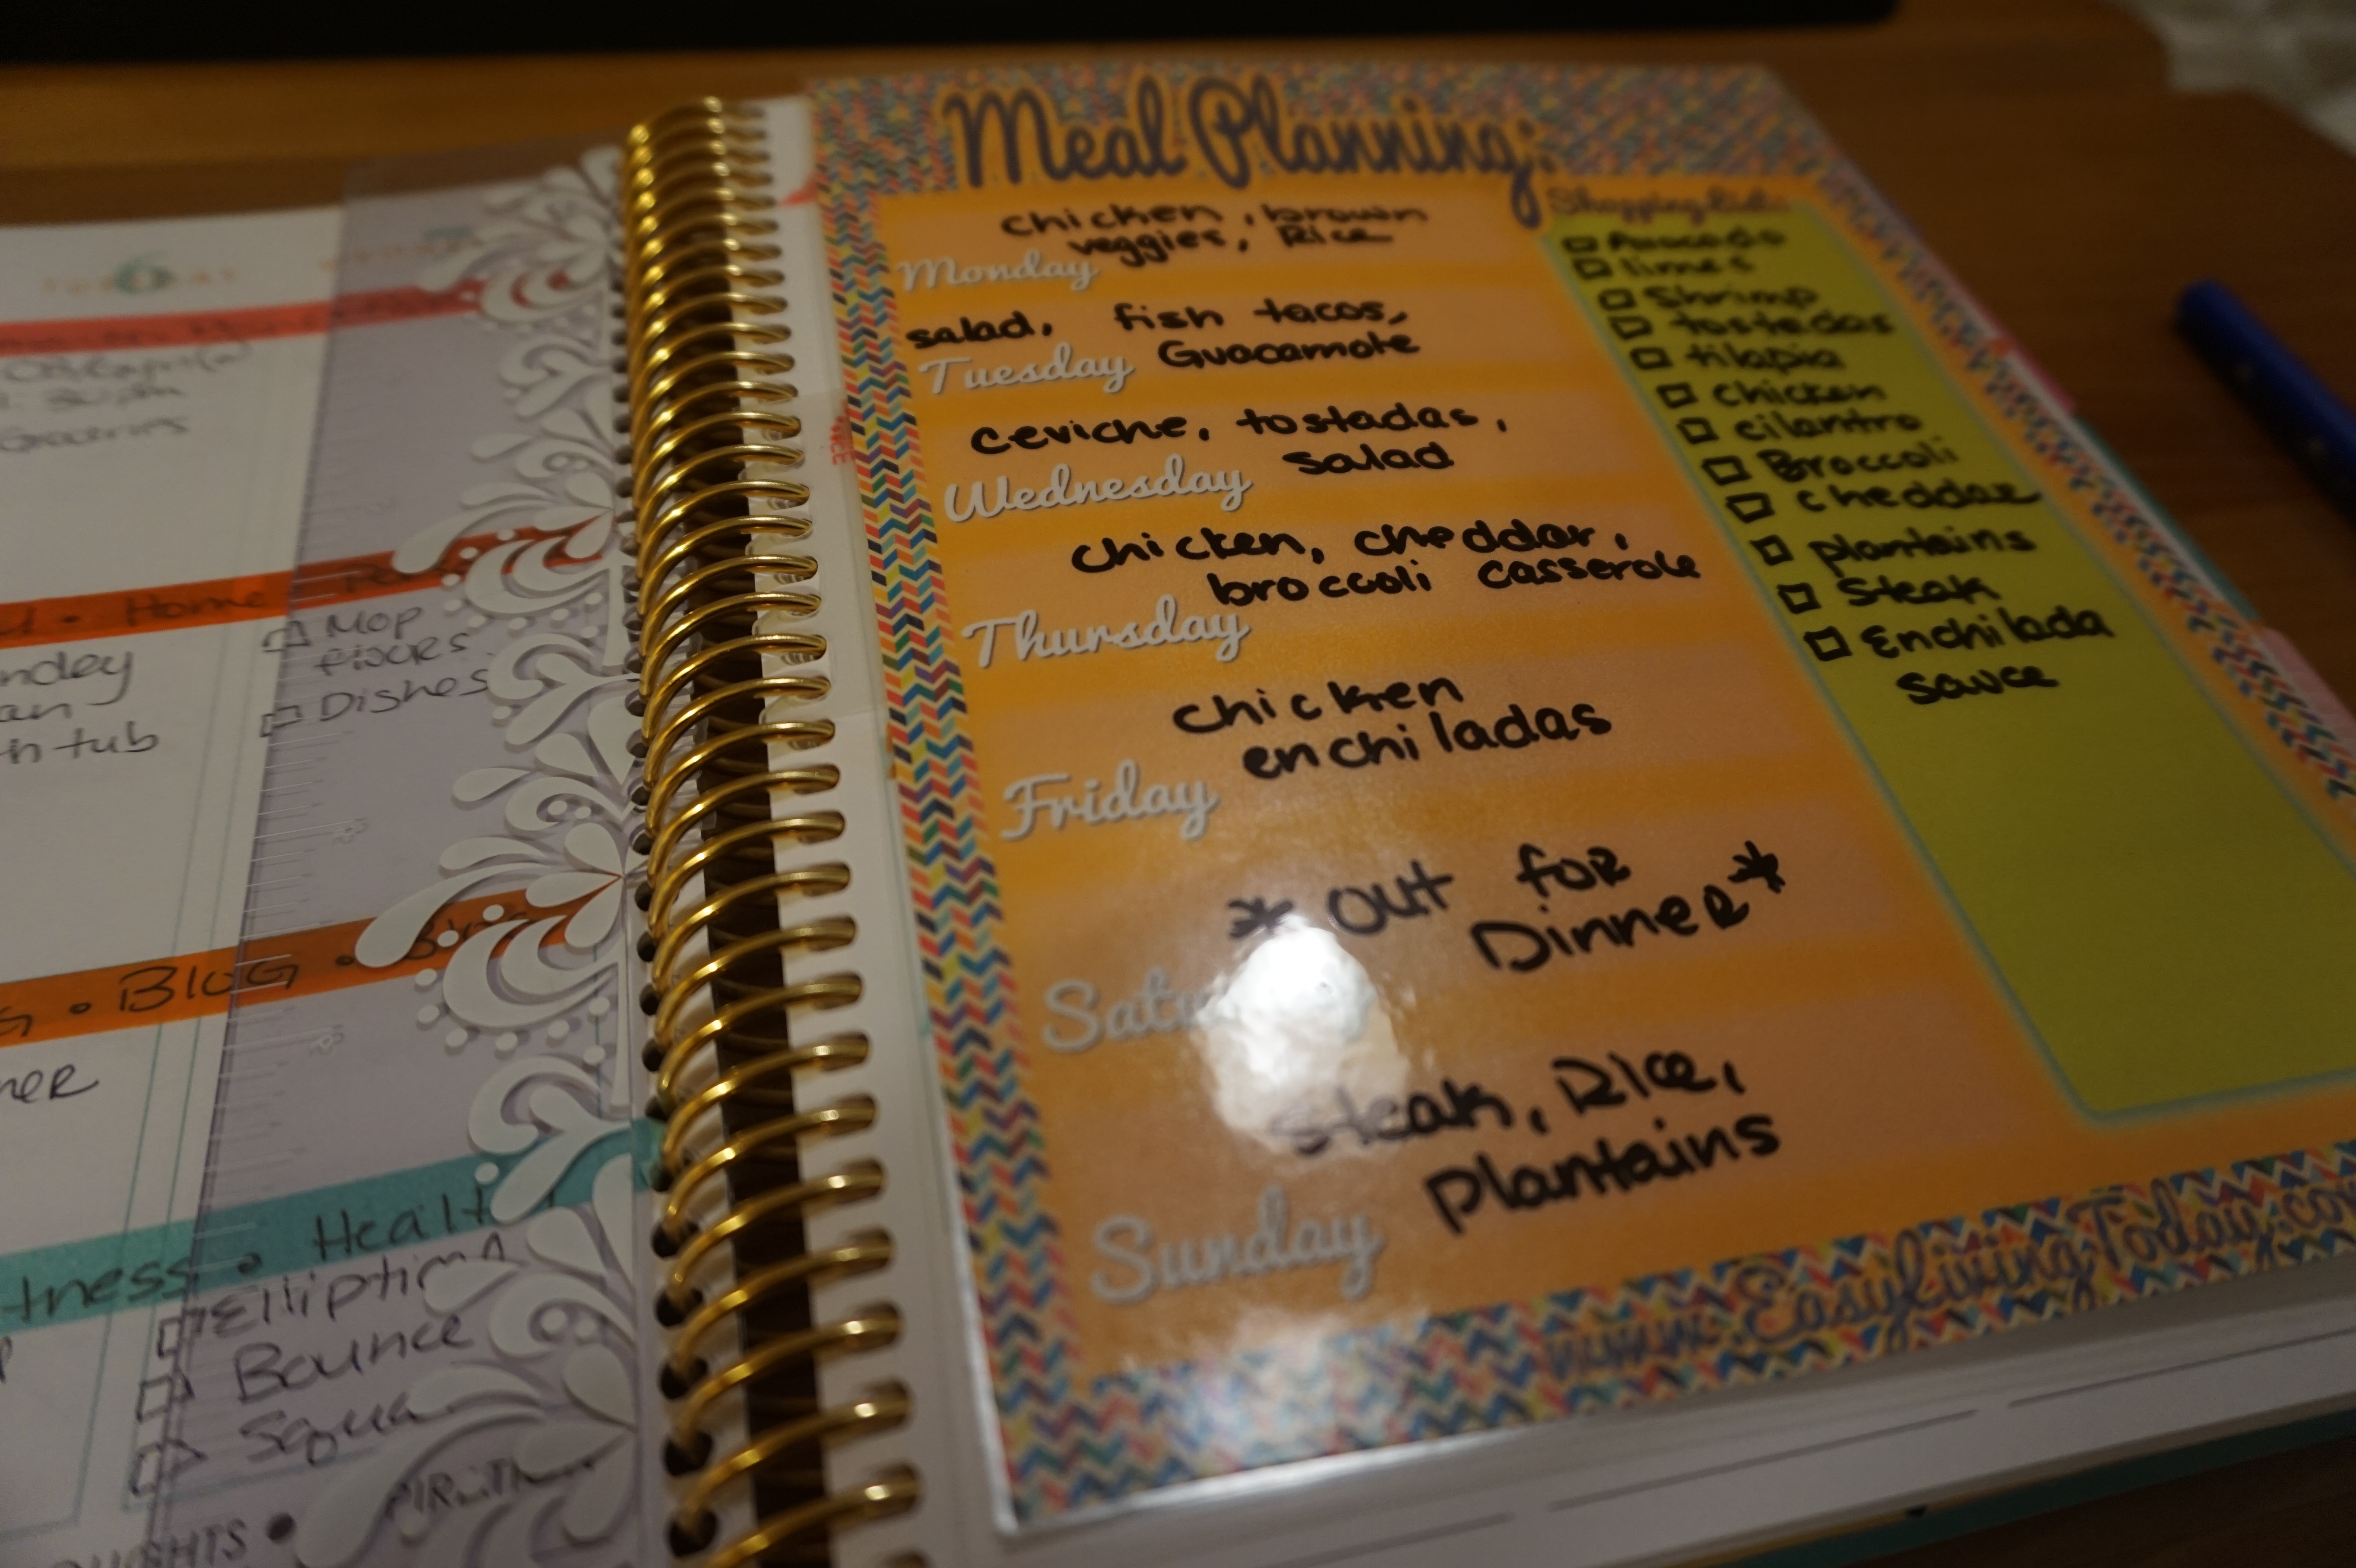 6
Groceries
Home
Mop
floors
Dishes
th tub
Blog
Health
Elliptical
Bounce
Meal Planning:
chicken, brown
veggies, Rice
Monday
salad, fish tacos,
Guacamole
Tuesday
ceviche, tostadas,
salad
Wednesday
chicken, cheddar,
broccoli casserole
Thursday
chicken
enchiladas
Friday
* out for
Dinner *
Satu
steak, Rice,
plantains
Sunday
Shopping List:
Avocado
limes
Shrimp
tostadas
tilapia
chicken
cilantro
Broccoli
cheddar
plantains
Steak
Enchilada
sauce
www.EasyLivingToday.co